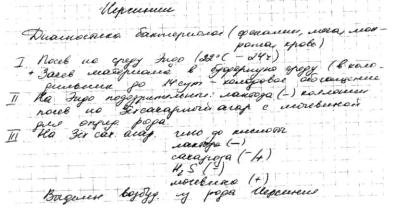 Иерсинии
Диагностика бактериолог (фекалии, моча, мок-
рота, кровь)
I Посев на среду Эндо (22°С – 24ч)
+ Засев материала в буферную среду (в холо-
дильник до 14 сут – холодовое обогащение
II На Эндо подозрительные: лактоза (–) колонии
посев на 3х сахарный агар с мочевиной
для опред рода
III На 3х сах. агар. до кислоты
лактоза (–)
сахароза (–)
H₂S (–)
мочевина (+)
Выделен возбуд. рода Иерсиния